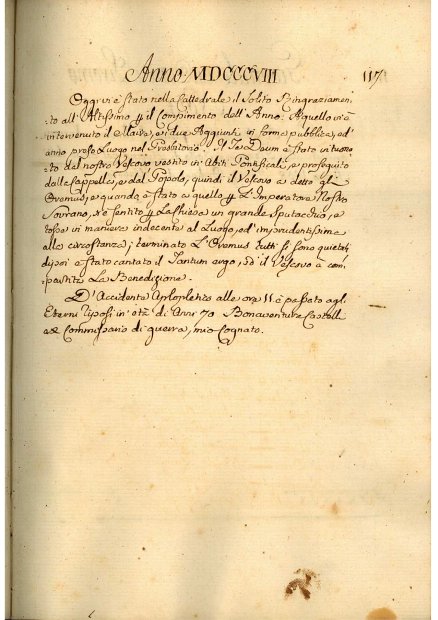 Anno MDCCCVIII 117
Oggi vi è stato nella Cattedrale il Solito Ringraziamen-
to all'Altissimo p il Compimento dell'Anno. A quello vi è
intervenuto il Maire, e i due Aggiunti in forma pubblica, ed
anno preso Luogo nel Presbiterio. Il Te Deum è stato intuona-
to dal nostro Vescovo vestito in Abiti Pontificali, e proseguito
dalla Cappella, e dal Popolo, quindi il Vescovo à detto gli
Oremus, e quando è stato a quello p L'Imperatore Nostro
Sovrano, s'è sentito p La Chiesa un grande Sputacchio, e
tosse in maniera indecente al Luogo, ed imprudentissima
alle circostanze; terminato L'Oremus tutti si sono quietati
di poi è stato cantato il Tantum ergo, ed il Vescovo à com-
partita La Benedizione.
D'Accidente Apopletico alle ore 11 è passato agli
Eterni riposi in età di Anni 70 Bonaventura Castell
Commissario di guerra, mio Cognato.